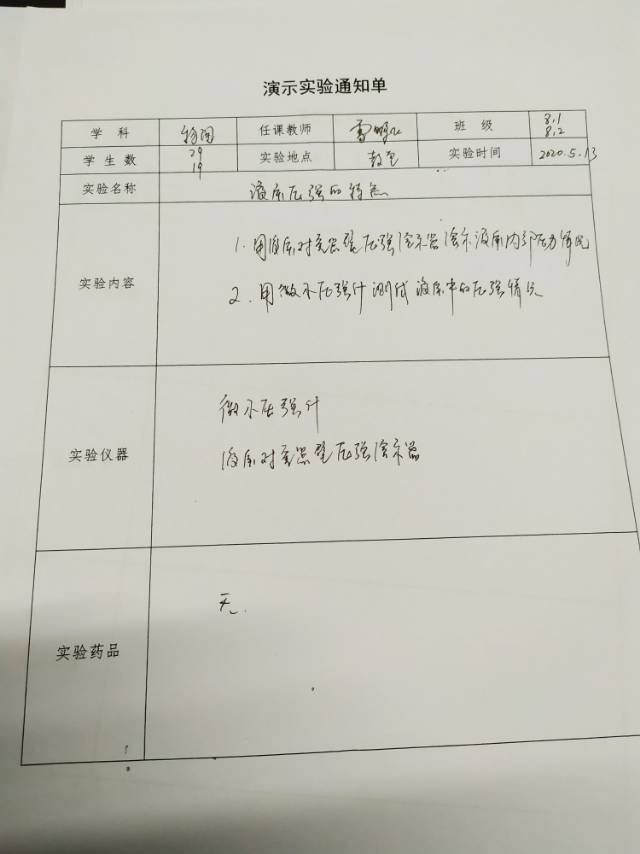 演示实验通知单
学 科 物理 任课教师 班 级 8.1 8.2
学生数 29 19 实验地点 教室 实验时间 2020.5.13
实验名称 液体压强的特点
实验内容
1. 用液体对容器壁压强演示器演示液体内部压力情况
2. 用微小压强计测试液体中的压强情况
实验仪器
微小压强计
液体对容器壁压强演示器
实验药品
无.